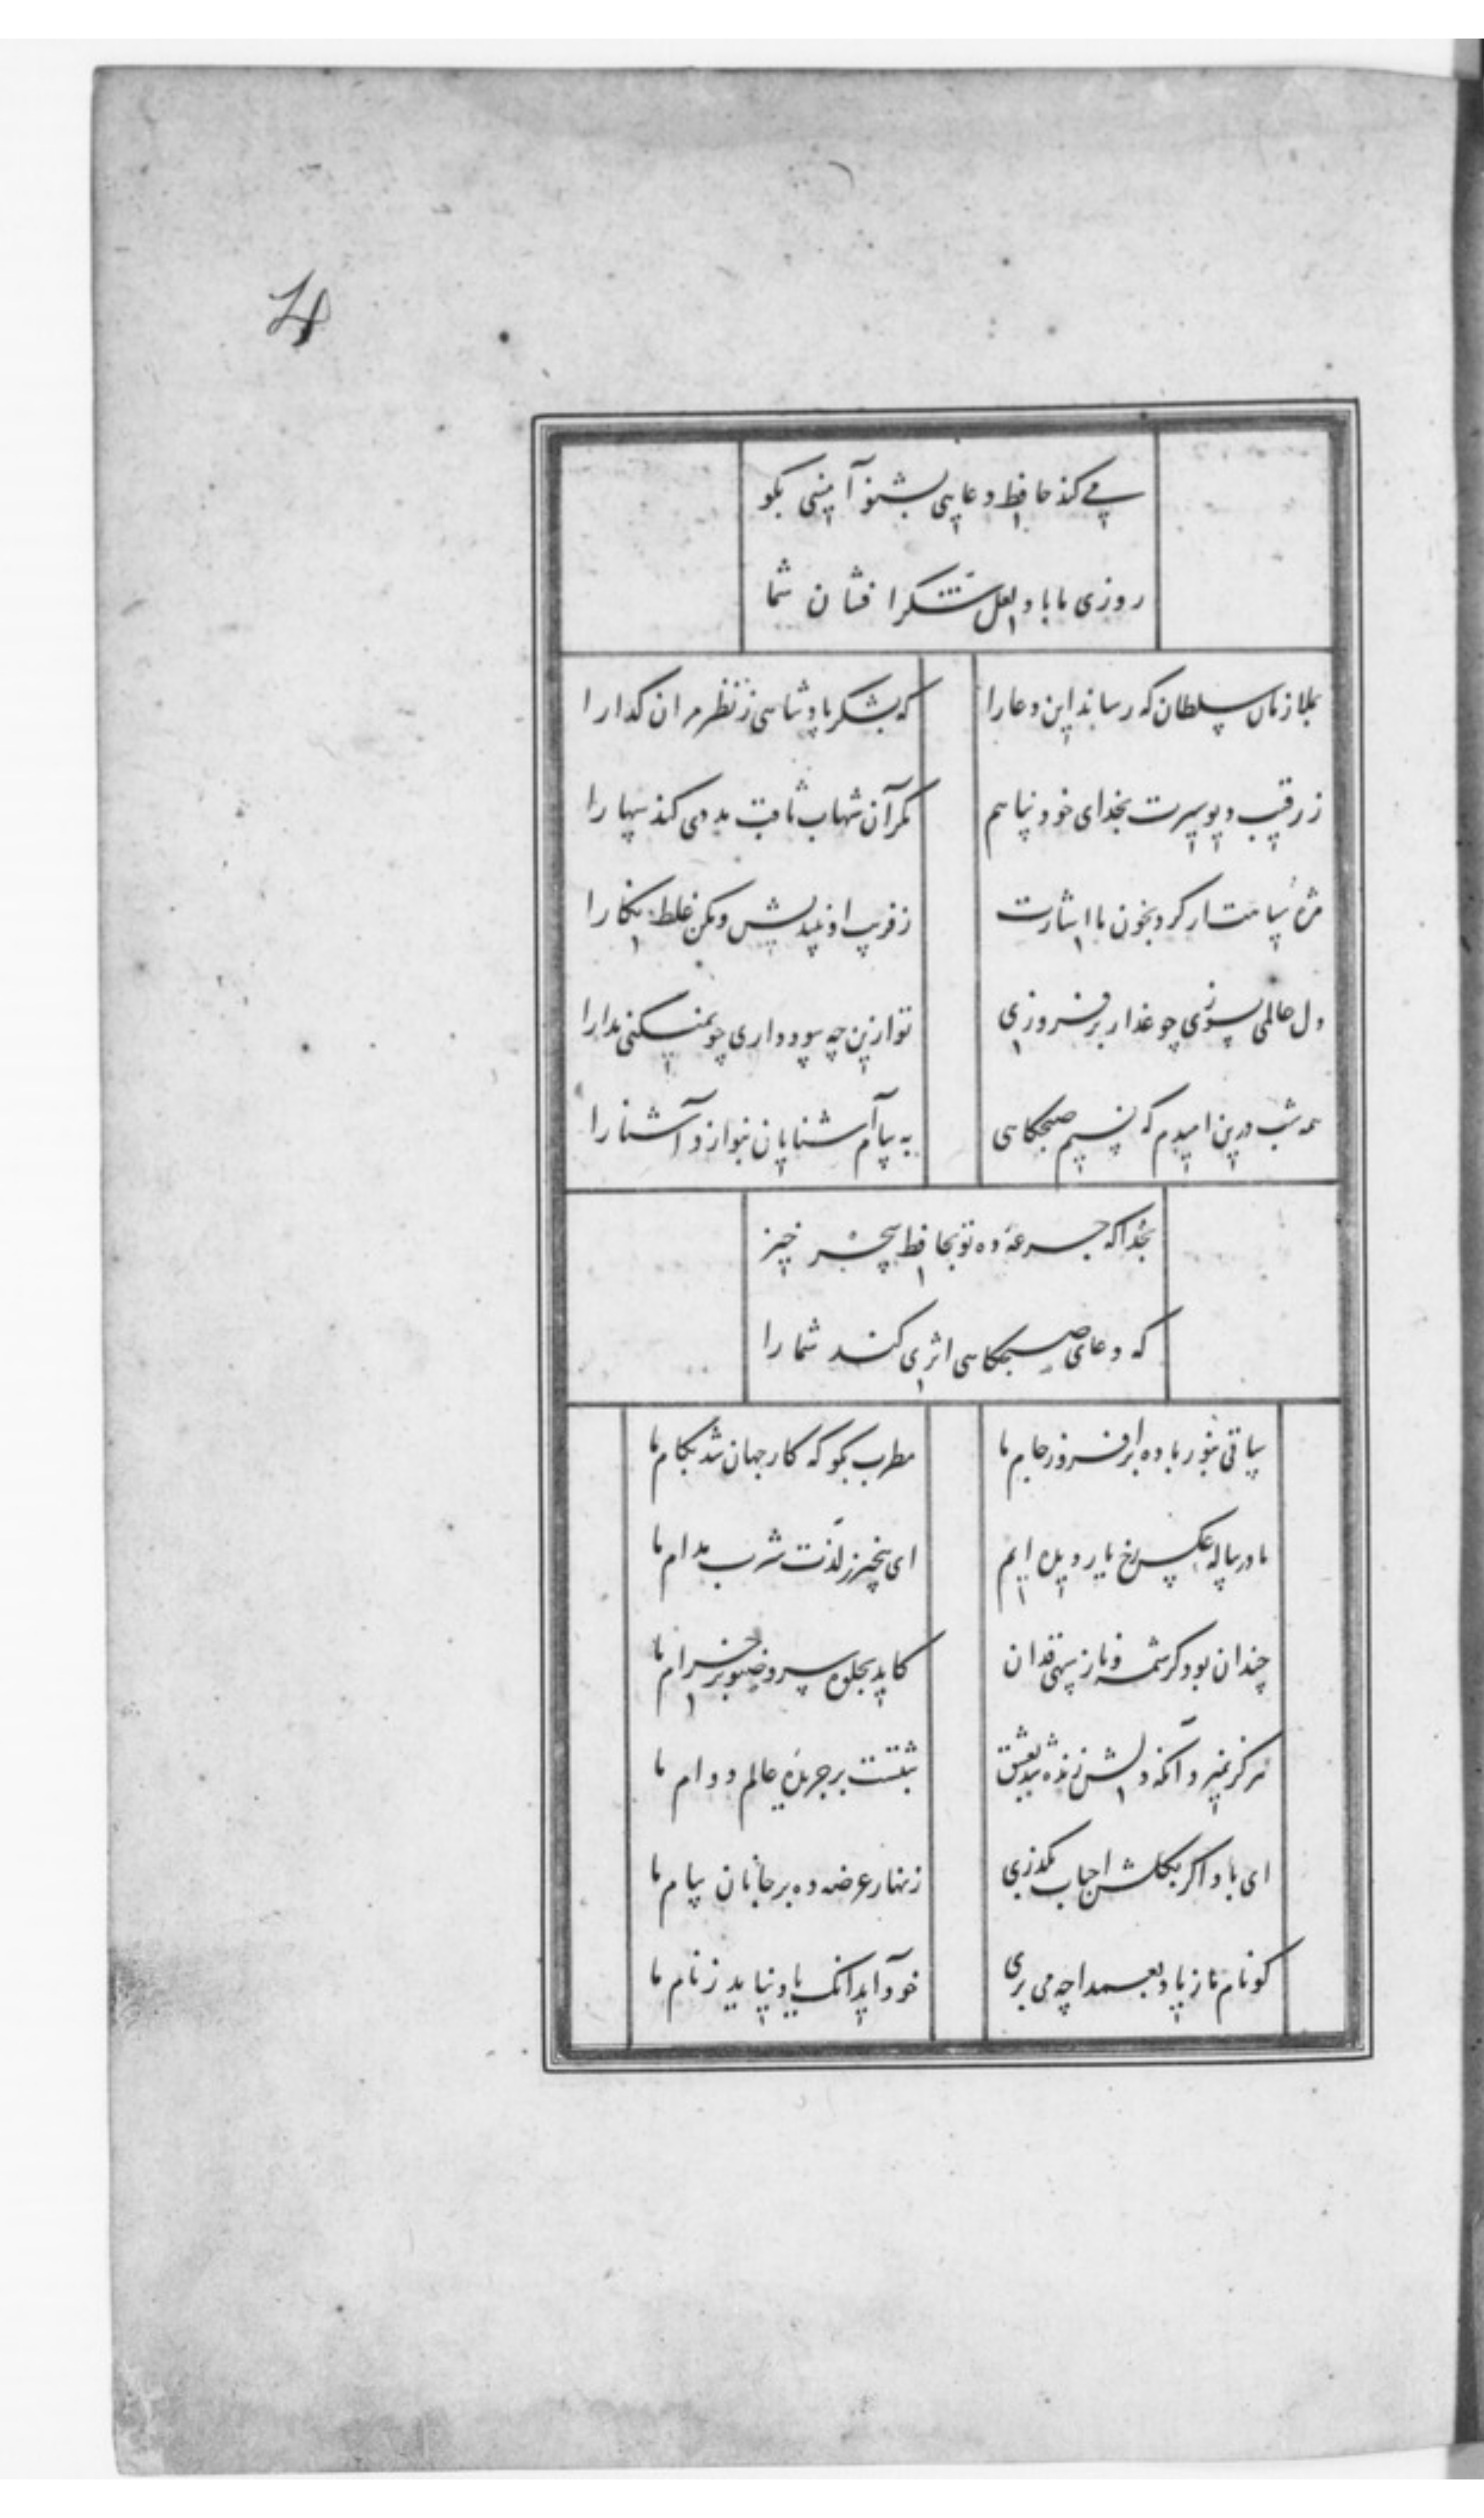 4
می کند حافظ دعایی بشنو آمینی بگو
روزی ما باد لعل شکر افشان شما
بملازمان سلطان که رساند این دعا را
که بشکر پادشاهی ز نظر مران گدا را
ز رقیب دیو سیرت بخدای خود پناهم
مگر آن شهاب ثاقب مددی کند سها را
مژهٔ سیاهت ار کرد بخون ما اشارت
ز فریب او بیندیش و مکن غلط نگارا
دل عالمی بسوزی چو عذار برفروزی
تو ازین چه سود داری چو نمیکنی مدارا
همه شب درین امیدم که نسیم صبحگاهی
به پیام آشنایان بنوازد آشنا را
بخدا که جرعهٔ ده تو بحافظ سحر خیز
که دعای صبحگاهی اثری کند شما را
ساقی بنور باده برافروز جام ما
مطرب بگو که کار جهان شد بکام ما
ما در پیاله عکس رخ یار دیده ایم
ای بیخبر ز لذت شرب مدام ما
چندان بود کرشمه و ناز سهی قدان
کاید بجلوه سرو صنوبر خرام ما
هرگز نمیرد آنکه دلش زنده شد بعشق
ثبتست بر جریدهٔ عالم دوام ما
ای باد اگر بگلشن احباب بگذری
زنهار عرضه ده بر جانان پیام ما
گو نام ما ز یاد بعمدا چه می بری
خود آید آنک یاد نیاید ز نام ما